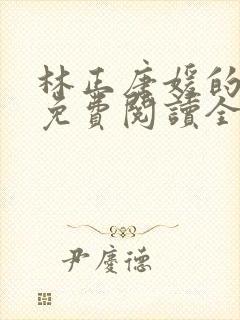 林正唐媛的
免費閱讀全
尹慶德